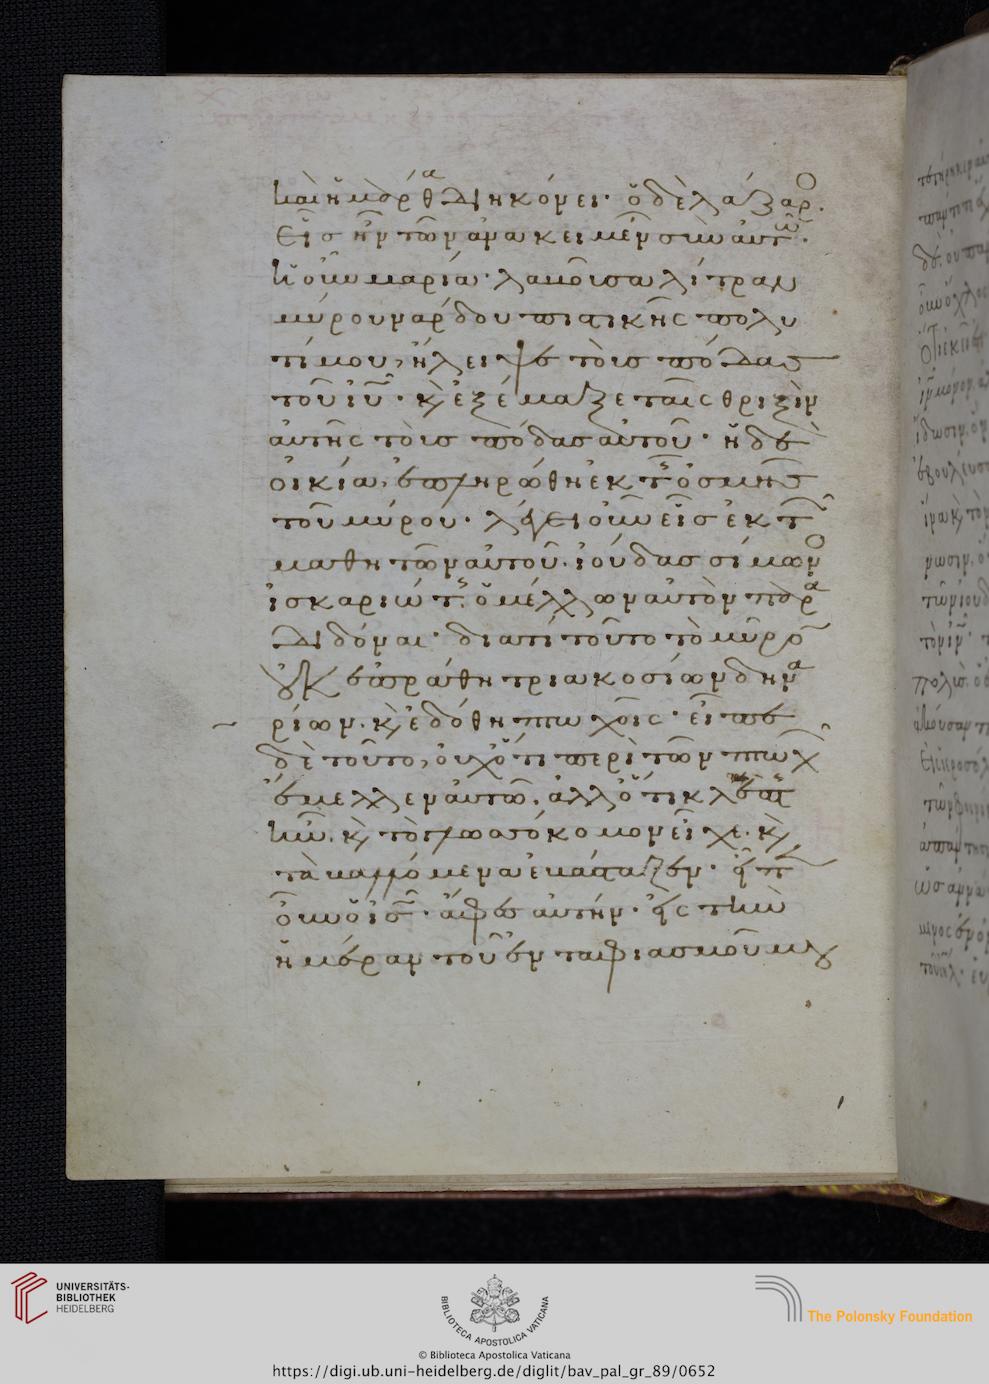 καὶ ἡ μάρθα διηκόνει· ὁ δὲ λάζαρο.
εἷς ἦν τῶν ἀνακειμένων σὺν αὐτῷ·
ἡ οὖν μαρία· λαβοῦσα λίτραν
μύρου νάρδου πιστικῆς πολυ
τίμου, ἤλειψε τοὺς πόδας
τοῦ ἰῦ· κ ἐξέμαξε ταῖς θριξὶν
αὐτῆς τοὺς πόδας αὐτοῦ· ἡ δὲ
οἰκία, ἐπληρώθη ἐκ τ ὀσμῆς
τοῦ μύρου· λέγει οὖν εἷς ἐκ τ
μαθητῶν αὐτοῦ· ἰούδας σίμων
ἰσκαριώτ· ὁ μέλλων αὐτὸν παρα
διδόναι· διατί τοῦτο τὸ μῦρο
οὐκ ἐπράθη τριακοσίων δηνα
ρίων· κ ἐδόθη πτωχοῖς· εἶπε
δὲ τοῦτο, οὐχ ὅτι περὶ τῶν πτωχ
ἔμελλεν αὐτῷ· ἀλλ ὅτι κλέπτ
ἦν· κ τὸ γλωσσόκομον εἶχε· κ
τὰ βαλλόμενα ἐβάσταζεν· εἶπ
οὖν ὁ ἰς· ἄφες αὐτήν· εἰς τὴν
ἡμέραν τοῦ ἐνταφιασμοῦ μου
UNIVERSITÄTS-
BIBLIOTHEK
HEIDELBERG
BIBLIOTECA APOSTOLICA VATICANA
The Polonsky Foundation
© Biblioteca Apostolica Vaticana
https://digi.ub.uni-heidelberg.de/diglit/bav_pal_gr_89/0652